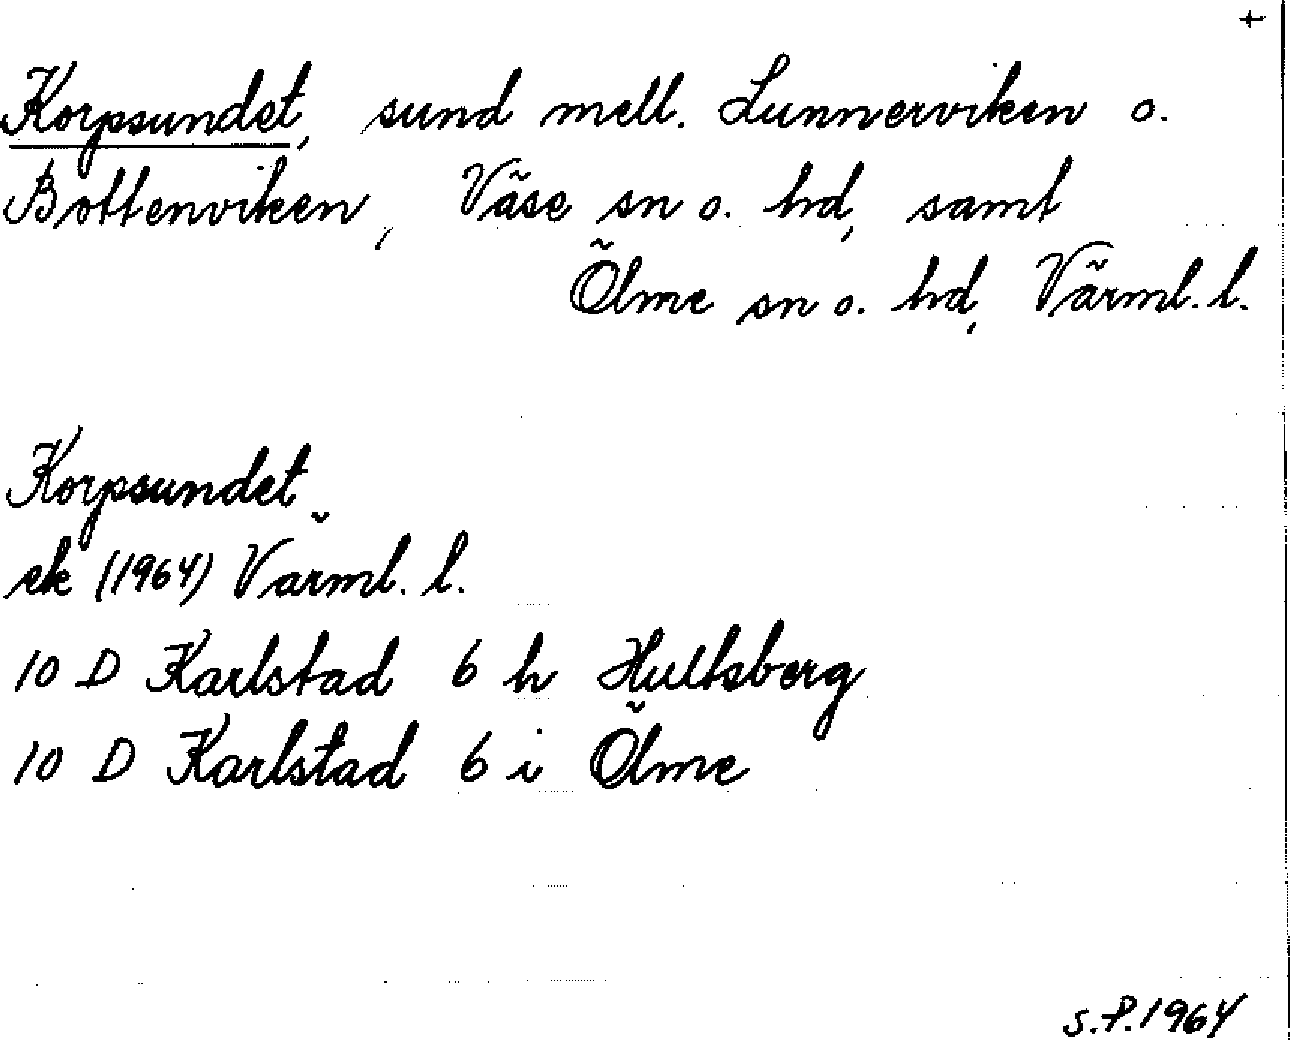 +
Korpsundet, sund mell. Lunnerviken o.
Bottenviken, Väse sn o. hd, samt
Ölme sn o. hd, Värml. l.
Korpsundet
ek (1964) Värml. l.
10 D Karlstad 6 h Hultsberg
10 D Karlstad 6 i Ölme
S.P. 1964